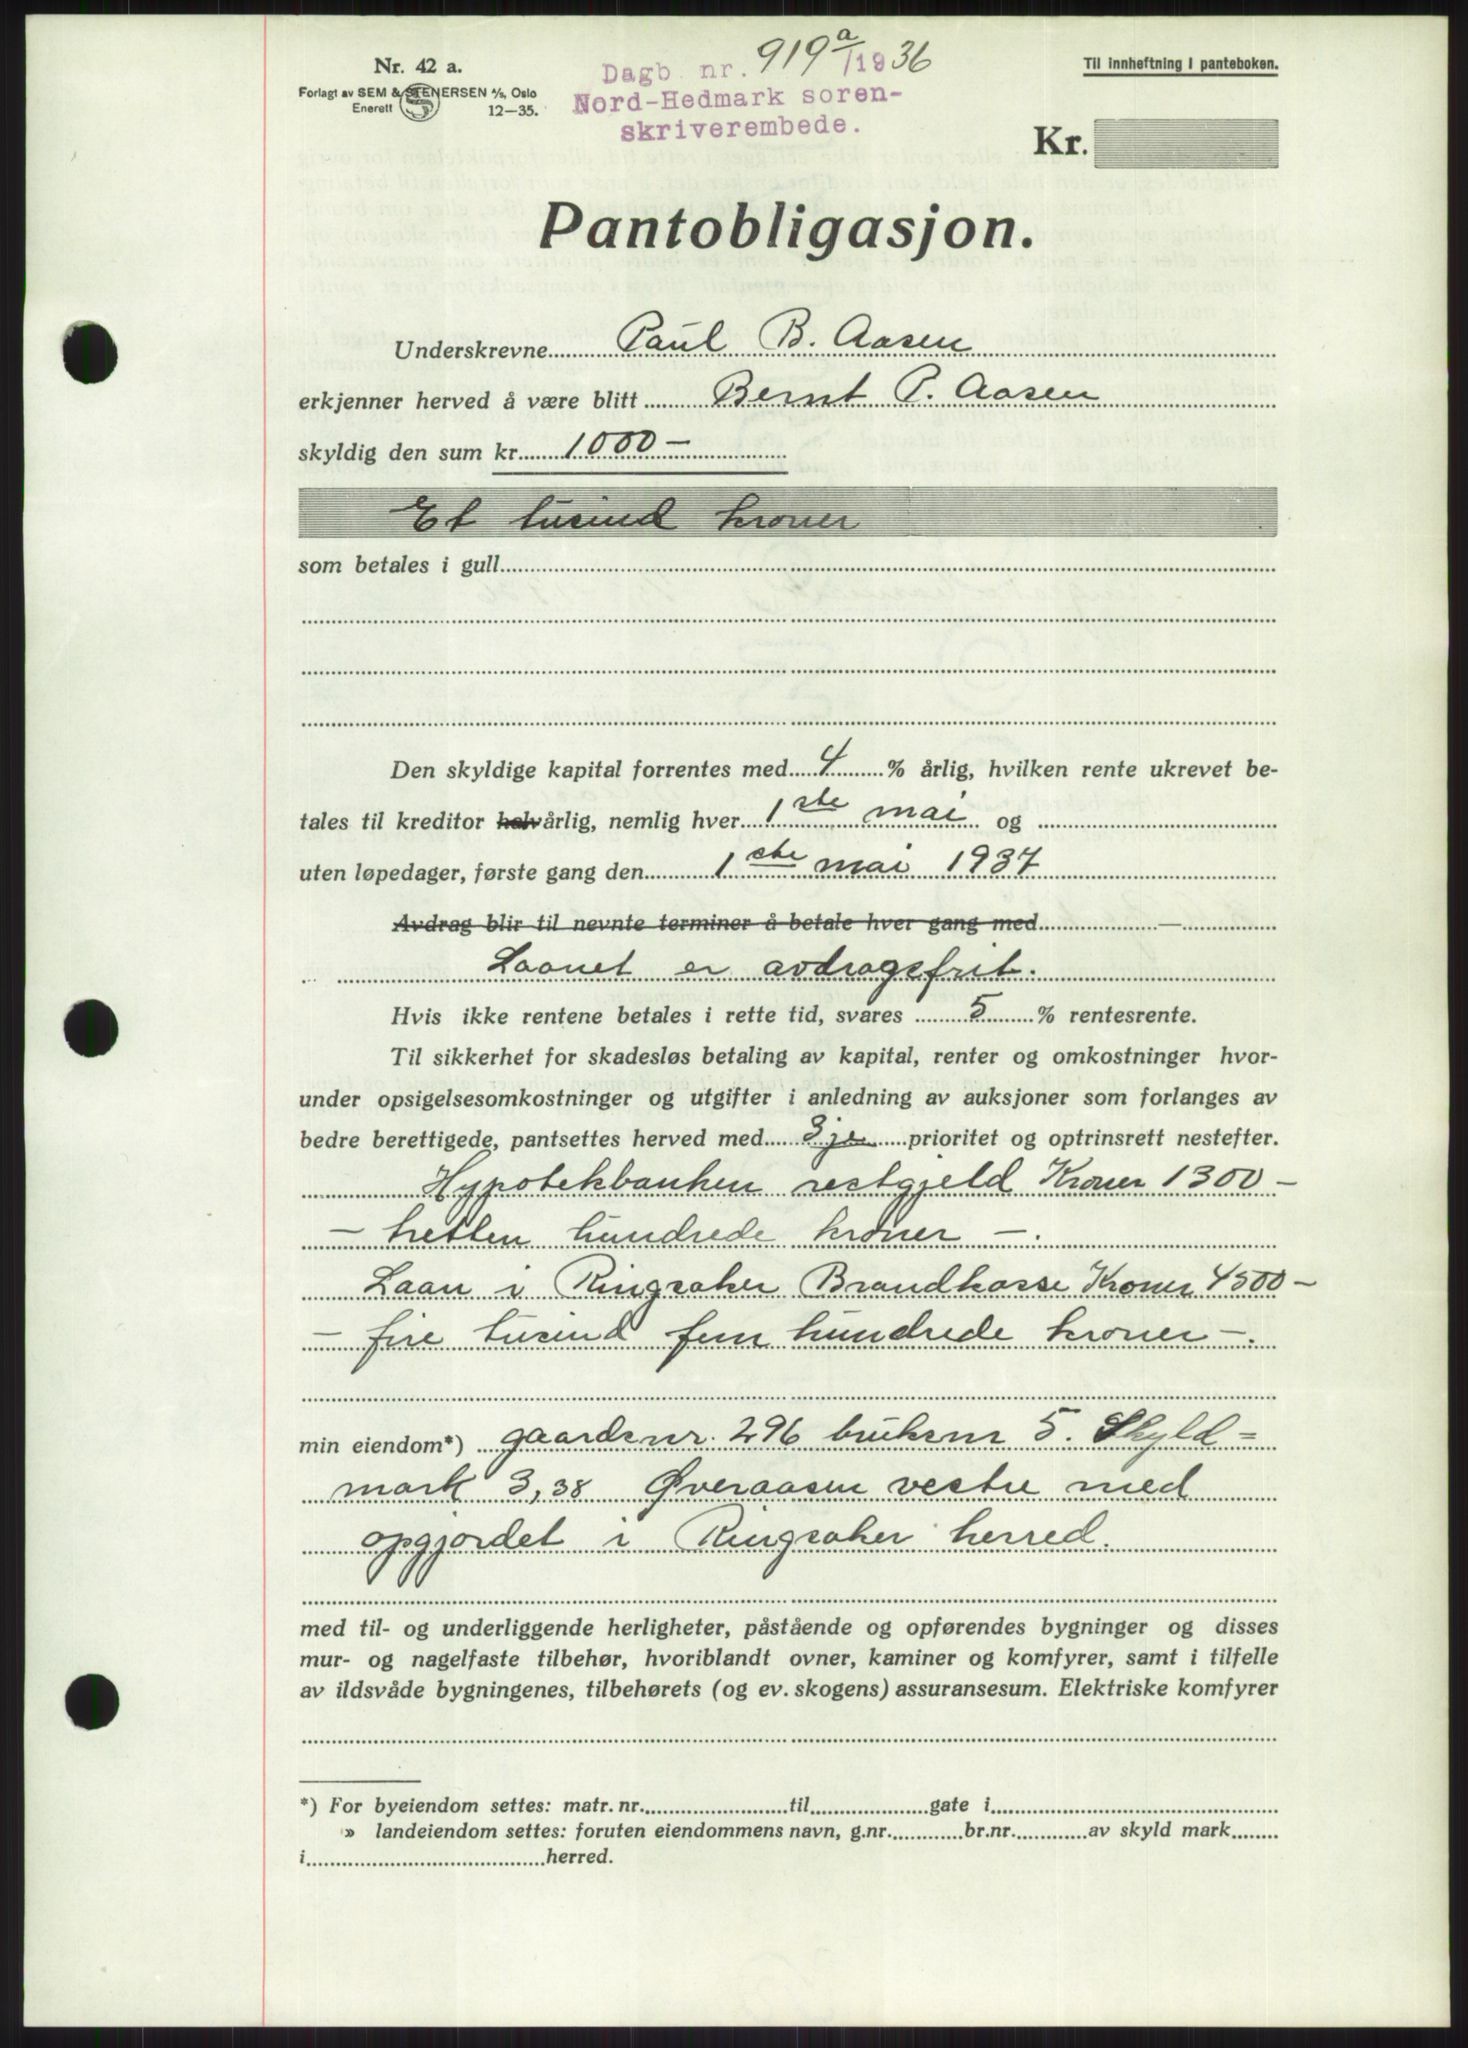 Nr. 42 a.
Forlagt av SEM & STENERSEN A/S, Oslo
Enerett 12—35.
Dagb. nr. 919 a/1936
Nord-Hedmark soren-
skriverembede.
Til innheftning i panteboken.
Kr.
Pantobligasjon.
Underskrevne Paul B. Aasen
erkjenner herved å være blitt Bernt P. Aasen
skyldig den sum kr. 1000 —
Et tusind kroner
som betales i gull
Den skyldige kapital forrentes med 4 % årlig, hvilken rente ukrevet be-
tales til kreditor halvårlig, nemlig hver 1ste mai og
uten løpedager, første gang den 1ste mai 1937
Avdrag blir til nevnte terminer å betale hver gang med —
Laanet er avdragsfrit.
Hvis ikke rentene betales i rette tid, svares 5 % rentesrente.
Til sikkerhet for skadesløs betaling av kapital, renter og omkostninger hvor-
under opsigelsesomkostninger og utgifter i anledning av auksjoner som forlanges av
bedre berettigede, pantsettes herved med 3je prioritet og optrinsrett nestefter.
Hypotekbanken restgjeld Kroner 1300 —
— tretten hundrede kroner —.
Laan i Ringsaker Brandkasse Kroner 4500 —
— fire tusind fem hundrede kroner —.
min eiendom*) gaardsnr. 296 bruksnr 5. Skyld=
mark 3,38 Øveraasen vestre med
opgjordet i Ringsaker herred.
med til- og underliggende herligheter, påstående og opførendes bygninger og disses
mur- og nagelfaste tilbehør, hvoriblandt ovner, kaminer og komfyrer, samt i tilfelle
av ildsvåde bygningenes, tilbehørets (og ev. skogens) assuransesum. Elektriske komfyrer
*) For byeiendom settes: matr. nr. til gate i
» landeiendom settes: foruten eiendommens navn, g.nr. br.nr. av skyld mark
i herred.